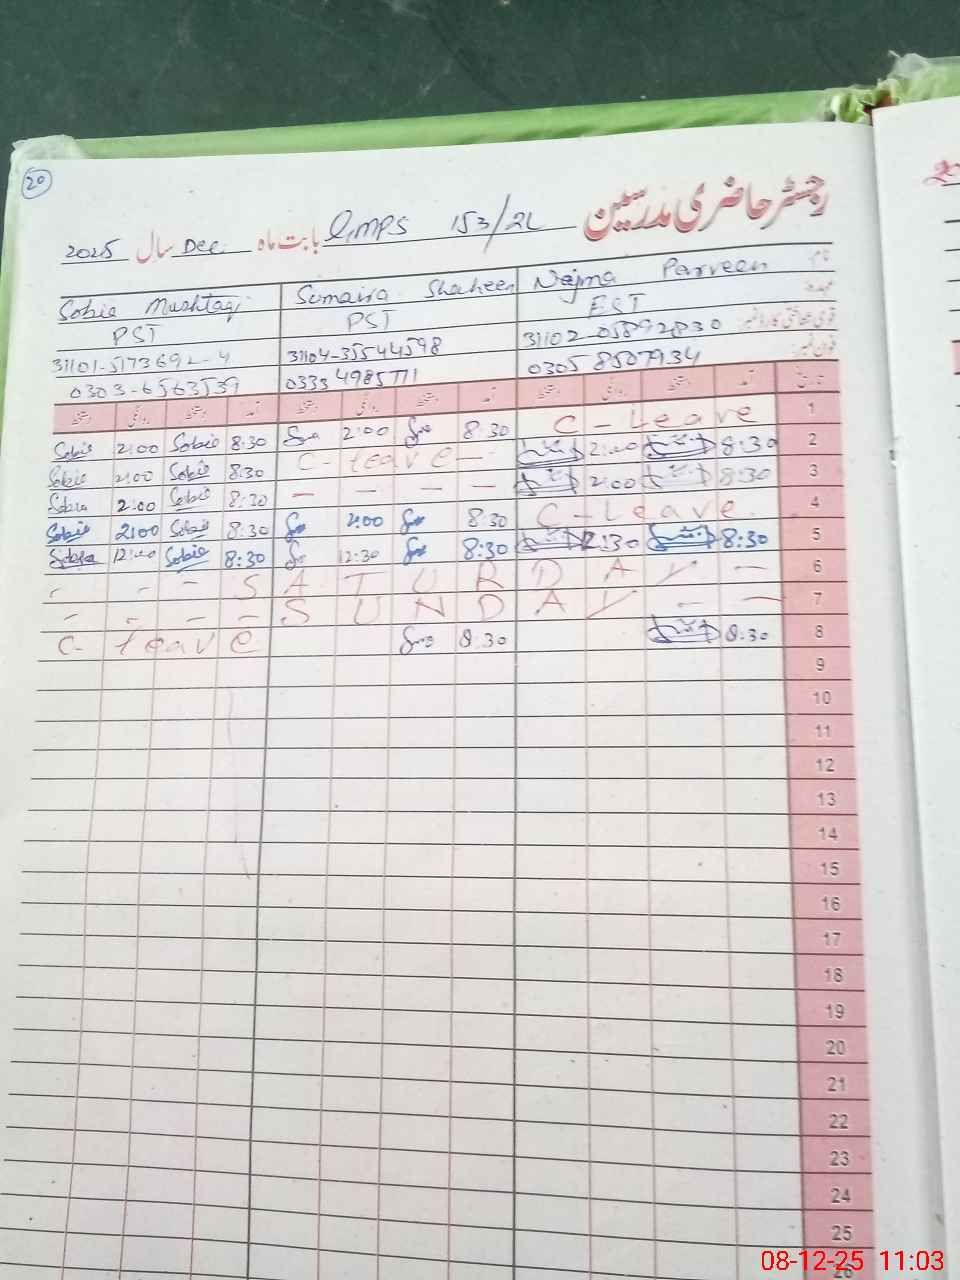 20
رجسٹر حاضری مدرسین G,MPS 153/2L بابت ماہ Dec سال 2025
نام Najma Parveen Sumaira Shaheen Sobia Mushtaq
عہدہ EST PST PST
قومی شناختی کارڈ نمبر: 31102-05892830 31104-35544598 31101-5173692-4
فون نمبر: 0305 8507934 0333 4985711 0303-6563539
تاریخ آمد دستخط روانگی دستخط آمد دستخط روانگی دستخط آمد دستخط روانگی دستخط
Sobia 2:00 Sobia 8:30 2:00 8:30 C - Leave 1
Sobia 2:00 Sobia 8:30 C - leave - 2:00 8:30 2
Sobia 2:00 Sobia 8:30 - - - - 2:00 8:30 3
Sobia 2:00 Sobia 8:30 2:00 8:30 C - Leave 4
Sobia 12:00 Sobia 8:30 12:30 8:30 12:30 8:30 5
- - - S A T U R D A Y - 6
- - - - S U N D A Y - - 7
C - leave 8:30 8:30 8
9
10
11
12
13
14
15
16
17
18
19
20
21
22
23
24
25
26
08-12-25 11:03